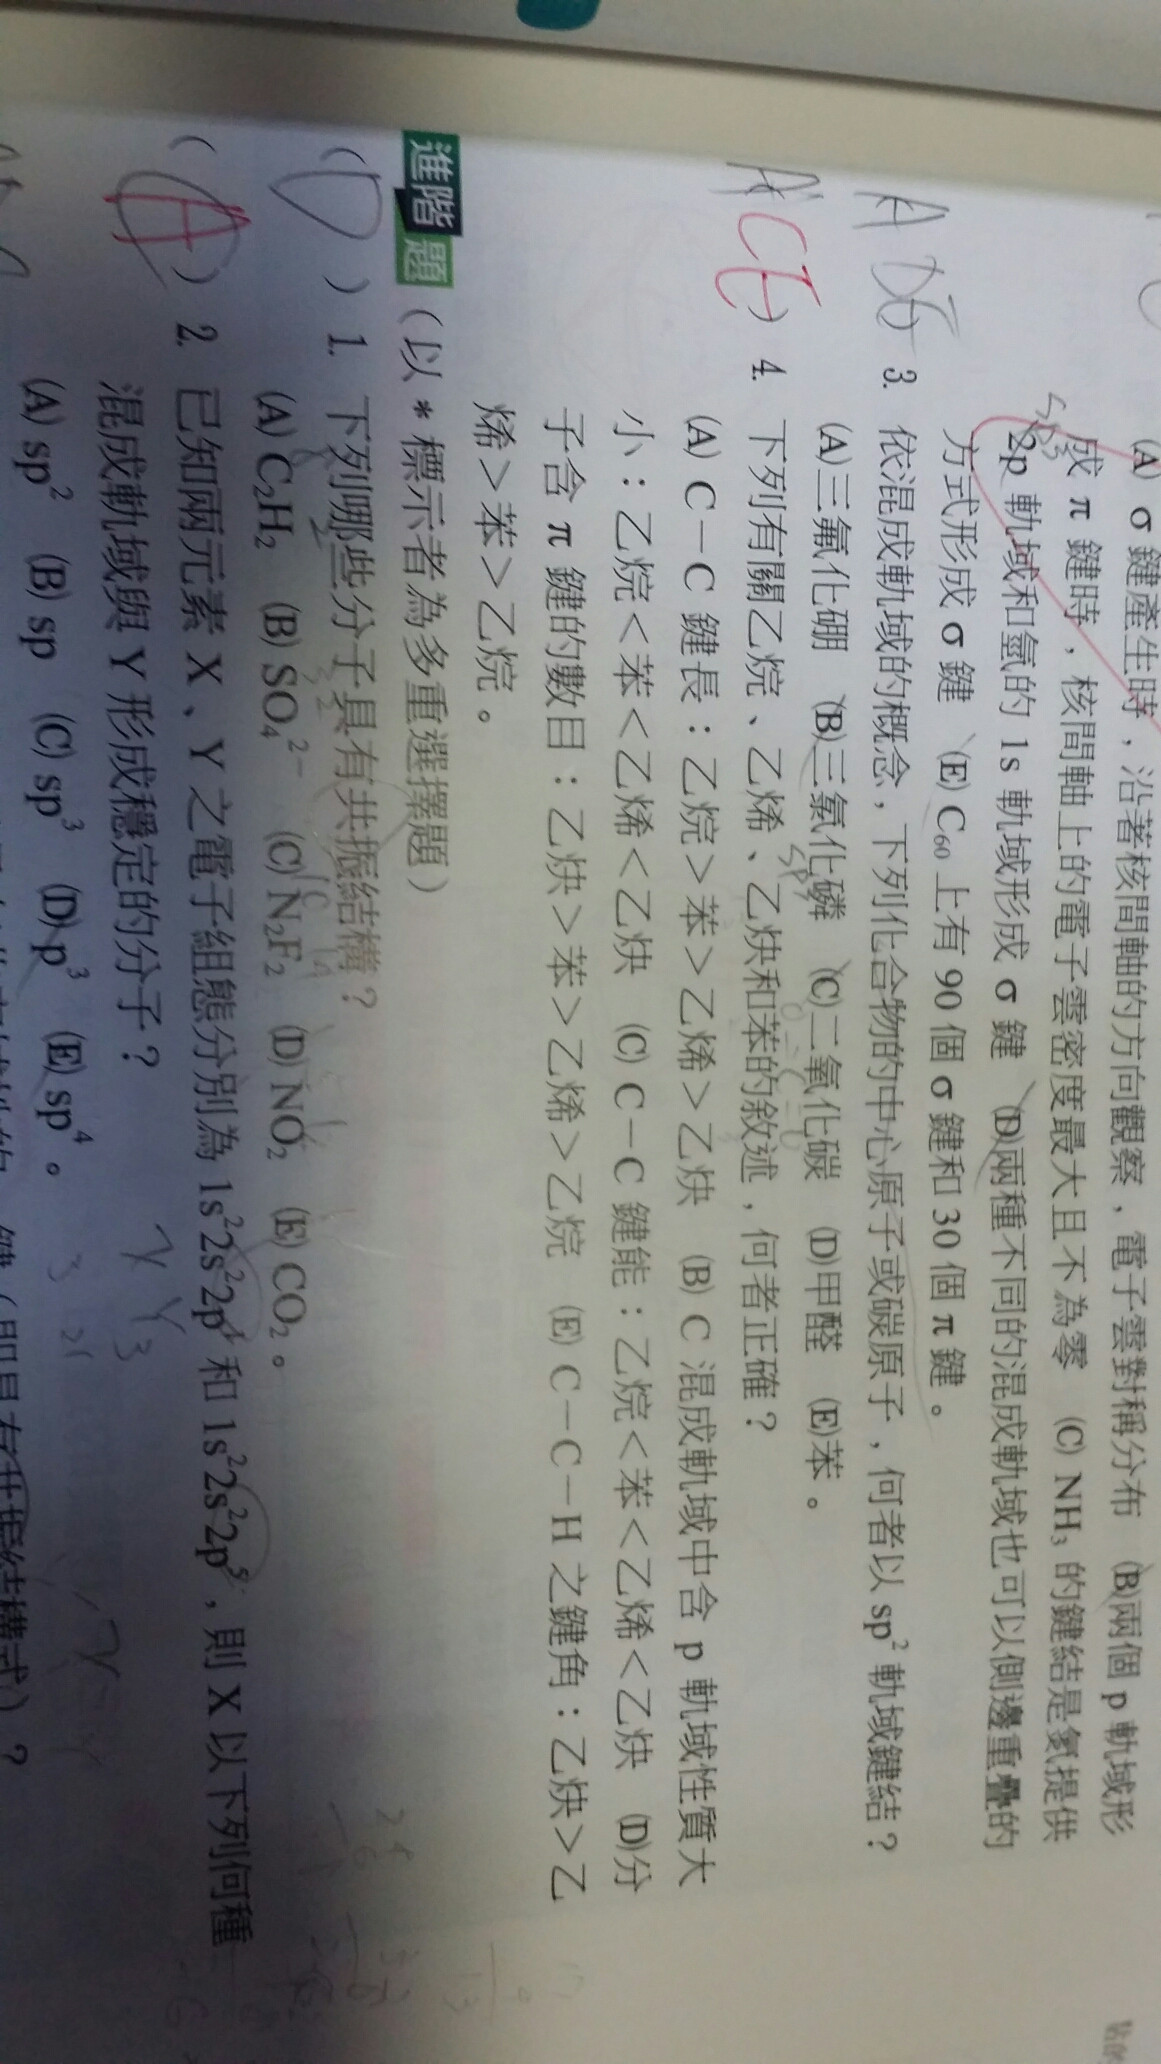 (A) σ 鍵產生時，沿著核間軸的方向觀察，電子雲對稱分布 (B)兩個 p 軌域形
成 π 鍵時，核間軸上的電子雲密度最大且不為零 (C) NH₃ 的鍵結是氮提供
sp³
2p 軌域和氫的 1s 軌域形成 σ 鍵 (D)兩種不同的混成軌域也可以側邊重疊的
方式形成 σ 鍵 (E) C₆₀ 上有 90 個 σ 鍵和 30 個 π 鍵。
A DE 3. 依混成軌域的概念，下列化合物的中心原子或碳原子，何者以 sp² 軌域鍵結？
(A)三氟化硼 (B)三氯化磷 (C)二氧化碳 (D)甲醛 (E)苯。
CE ) 4. 下列有關乙烷、乙烯、乙炔和苯的敘述，何者正確？
(A) C－C 鍵長：乙烷＞苯＞乙烯＞乙炔 (B) C 混成軌域中含 p 軌域性質大
小：乙烷＜苯＜乙烯＜乙炔 (C) C－C 鍵能：乙烷＜苯＜乙烯＜乙炔 (D)分
子含 π 鍵的數目：乙炔＞苯＞乙烯＞乙烷 (E) C－C－H 之鍵角：乙炔＞乙
烯＞苯＞乙烷。
進階題（以 * 標示者為多重選擇題）
( D ) 1. 下列哪些分子具有共振結構？
(A) C₂H₂ (B) SO₄²⁻ (C) N₂F₂ (D) NO₂ (E) CO₂。
( A ) 2. 已知兩元素 X、Y 之電子組態分別為 1s²2s²2p¹ 和 1s²2s²2p⁵，則 X 以下列何種
混成軌域與 Y 形成穩定的分子？
(A) sp² (B) sp (C) sp³ (D) p³ (E) sp⁴。